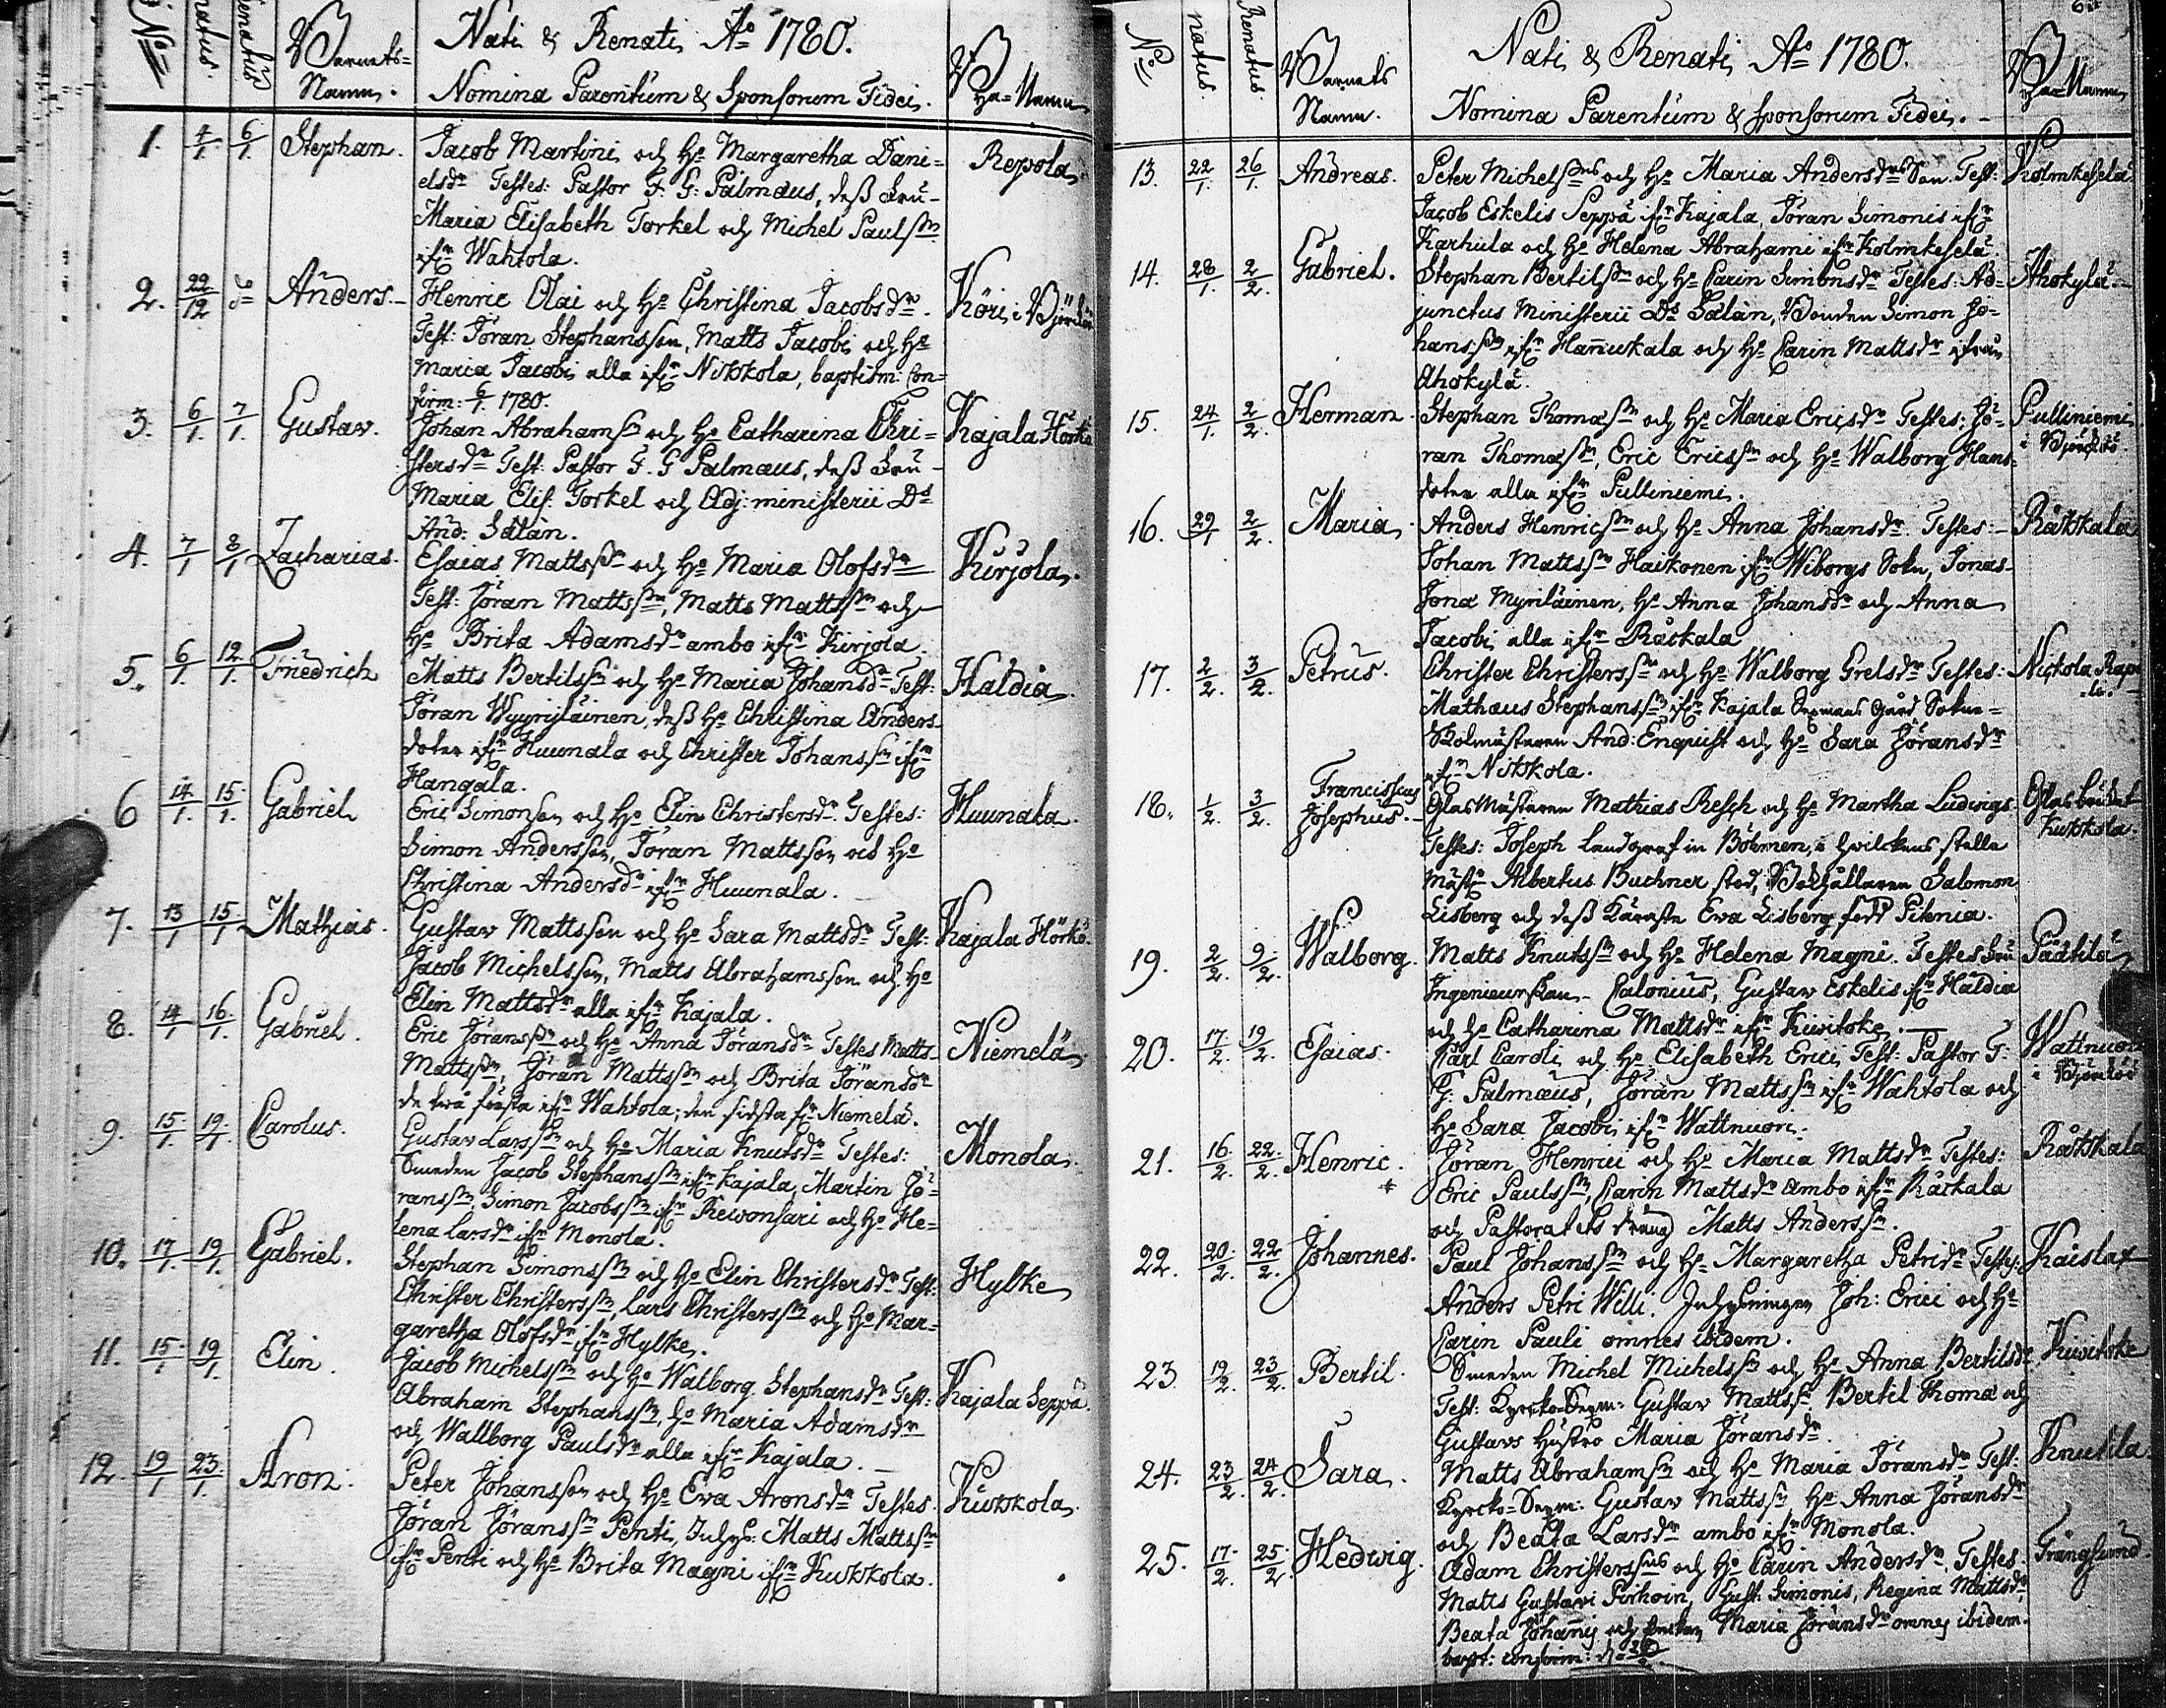 No natus. Renatus Barnets= Namn. Nati & Renati Ao 1780. By=Namn
Nomina Parentum & Sponsorum Fidei.
1. 4/1. 6/1. Stephan. Jacob Martini och Ho Margaretha Dani= Repola
elsdr Testes: Pastor F. G: Palmæus, dess Fru
Maria Elisabeth Torkel och Michel Paulssn
ifrn Wahtola.
2. 22/12 Anders. Henric Olai och Ho Christina Jacobsdr. Köri i Björkö
Test: Jöran Stephansson, Matts Jacobi och Ho
Maria Jacobi alla ifrn Nikkola, baptism: Con=
firm: 6/1. 1780.
3. 6/1. 7/1. Gustav. Johan Abrahamssn och Ho Catharina Chri= Kajala Hörkö
stersdr Test: Pastor F. G Palmæus, dess Fru
Maria Elis. Torkel och Adj: ministerii Ds
And: Salan.
4. 7/1 8/1 Zacharias. Esaias Mattssn och Ho Maria Olofsdr Kirjola.
Test: Jöran Mattssn, Matts Mattssn och
Ho Brita Adamsdr ambo ifrn Kirjola.
5. 6/1. 12/1. Friedrich Matts Bertilssn och Ho Maria Johansdr Test: Haldia.
Jöran Wyyryläinen, dess Ho Christina Anders
doter ifrn Huunala och Christer Johanssn ifrn
Hangala.
6 14/1. 15/1. Gabriel Eric Simonson och Ho Elin Christersdr. Testes: Huunala.
Simon Andersson, Jöran Mattsson och Ho
Christina Andersdr ifrn Huunala.
7. 13/1 15/1 Mathias. Gustav Mattsson och Ho Sara Mattsdr Test: Kajala Hörkö.
Jacob Michelsson, Matts Abrahamsson och Ho
Elin Mattsdr alla ifrn Kajala.
8. 14/1 16/1. Gabriel. Eric Jöranssn och Ho Anna Jöransdr Testes Matts Niemelä
Mattssn, Jöran Mattssn och Brita Jöransdr
de två första ifrn Wahtola; den sidsta fn Niemelä.
9. 15/1. 19/1. Carolus. Gustav Larssn och Ho Maria Knutsdr Testes: Monola.
Smeden Jacob Stephanssn ifrn Kajala, Martin Jö=
ranssn, Simon Jacobssn ifrn Rewonsari och Ho He=
lena Larsdr ifrn Monola.
10. 17/1. 19/1. Gabriel. Stephan Simonssn och Ho Elin Christersdr Test: Hylke
Christer Christerssn, Lars Christerssn och Ho Mar=
garetha Olofsdr ifrn Hylke.
11. 15/1. 19/1. Elin. Jacob Michelssn och Ho Walborg Stephansdr Test: Kajala Seppä.
Abraham Stephanssn, Ho Maria Adamsdr
och Wallborg Paulsdr alla ifrn Kajala.
12. 19/1 23/1. Aron. Peter Johansson och Ho Eva Aronsdr Testes Kukkola
Jöran Jöranssn Penti, Inhys: Matts Mattssn
ifrn Penti och Ho Brita Magni ifrn Kukkola.
No natus. Renatus. Barnets Namn. Nati & Renati Ao 1780. By=Namn
Nomina Parentum & Sponsorum Fidei.
13. 22/1. 26/1. Andreas. Peter Michelssns och Ho Maria Andersdrs Son. Test: Kolmkeselä
Jacob Eskelis Seppä ifrn Kajala, Jöran Simonis ifrn
Karhula och Ho Helena Abrahami ifrn Kolmkeselä
14. 28/1. 2/2. Gabriel. Stephan Bertilssn och Ho Carin Simonsdr Testes: Ad= Ahokylä.
junctus Ministerii Ds Salan, Bonden Simon Jo=
hanssn ifrn Hannukala och Ho Carin Mattsdr ifrån
Ahokylä.
15. 24/1. 2/2. Herman. Stephan Thomæssn och Ho Maria Ericsdr Testes: Jö= Pulliniemi
ran Thomæssn, Eric Ericssn och Ho Walborg Hans= i Björkö.
doter alla ifrn Pulliniemi.
16. 29/1 2/2. Maria. Anders Henricssn och Ho Anna Johansdr Testes: Räkkala
Johan Mattssn Haikonen ifrn Wiborgs Sokn, Jonas
Jonæ Myriläinen, Ho Anna Johansdr och Anna
Jacobi alla ifrn Räckala
17. 2/2. 3/2. Petrus. Christer Christerssn och Ho Walborg Grelsdr Testes: Nickola
Mathæus Stephanssn ifrn Kajala Sexmans Gård Sokne=
Skolmästaren And: Enquist och Ho Sara Jöransdr
ifrn Nikkola.
18. 1/2. 3/2. Franciscus Josephus. Glas Mästaren Mathias Resch och Ho Martha Ludwigs Glasbruket
Testes: Joseph Landgraf in Böhmen, i hvilckens stelle Kukkola.
Mäst. Albertus Buchner stod, Bokhållaren Salomon
Lisberg och dess Käresta Eva Lisberg född Pitenia.
19. 2/2. 9/2. Walborg. Matts Knutssn och Ho Helena Magni. Testes Fru Päätilä
Ingenieurskan Calonius, Gustav Eskelis ifrn Haldia
och Ho Catharina Mattsdr ifrn Kiwitoke.
20. 17/2. 19/2. Esaias. Karl Caroli och Ho Elisabeth Erici, Test: Pastor F: Wattnuori
G: Palmæus, Jöran Mattssn ifrn Wahtola och i Björkö
Ho Sara Jacobi ifrn Wattnuori.
21. 16/2. 22/2. Henric. Jöran Henrici och Ho Maria Mattsdr Testes: Räkkala
Eric Paulssn, Carin Mattsdr ambo ifrn Räckala
och Pastoratets dräng Matts Anderssn.
22. 20/2. 22/2. Johannes. Paul Johanssn och Ho Margaretha Petridr Testes: Kaislax
Anders Petri Willi. Inhysningen Joh: Erici och Ho
Carin Pauli omnes ibidem.
23 19/2. 23/2. Bertil. Smeden Michel Michelssn och Ho Anna Bertilsdr Kiwitoke
Test: Kyrcko=Sexm: Gustav Mattssn, Bertil Thomæ och
Gustavs Hustro Maria Jöransdr.
24. 23/2. 24/2. Sara. Matts Abrahamssn och Ho Maria Jöransdr Test: Knutila.
Kyrcko=Sexm: Gustav Mattssn, Ho Anna Jöransdr
och Beata Larsdr ambo ifrn Monola.
25. 17/2. 25/2. Hedwig. Adam Christerssns och Ho Carin Andersdr, Testes Trångsund.
Matts Gustavi Pirhoin, Gust: Simonis, Regina Mattsdr,
Beata Johannis och Enckan Maria Jöransdr omnes ibidem.
bapt: confirm: